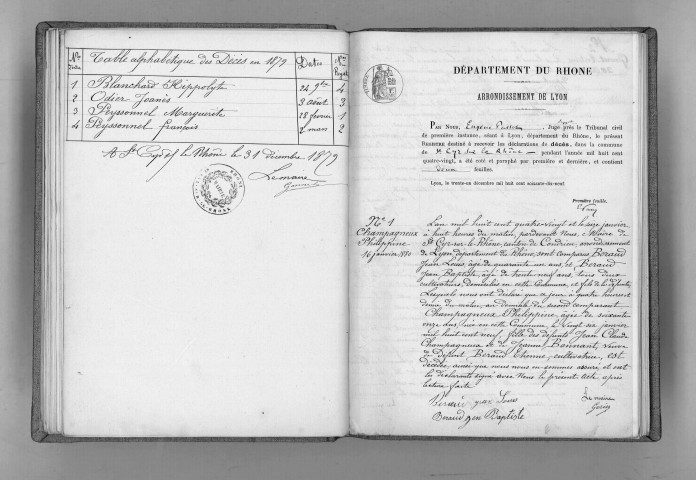 Nos
Table alphabétique des Décès en 1879
Dates
Nos
1 Blanchard Hippolyte 24 9bre 4
2 Odier Joanès 3 août 3
3 Peyssonnel Marguerite 18 février 1
4 Peyssonnel françois 2 mars 2
A St Cyr le Rhône le 31 décembre 1879
Le maire
DÉPARTEMENT DU RHONE
ARRONDISSEMENT DE LYON
PAR NOUS, Eugène Juge près le Tribunal civil
de première instance, séant à Lyon, département du Rhône, le présent
REGISTRE destiné à recevoir les déclarations de décès, dans la commune
de St Cyr sur le Rhône pendant l'année mil huit cent
quatre-vingt, a été coté et paraphé par première et dernière, et contient
deux feuilles.
Lyon, le trente-un décembre mil huit cent soixante-dix-neuf
Première feuille.
No 1
Champagneux
Philippine
16 janvier 1880
L'an mil huit cent quatre-vingt et le seize janvier
à huit heures du matin, pardevant Nous, Maire de
St Cyr-sur-le Rhône, canton de Condrieu, arrondissement
de Lyon, département du Rhône, sont comparus Beraud
Jean Louis, âgé de quarante un ans, et Beraud
Jean Baptiste, âgé de trente neuf ans, tous deux
cultivateurs, domiciliés en cette Commune, et fils de la défunte,
Lesquels nous ont déclaré que ce jour, à quatre heures et
demie du matin, au domicile du second comparant
Champagneux Philippine, âgée de soixante
onze ans, née en cette Commune, le vingt six janvier
mil huit cent neuf, fille des défunts Jean Claude
Champagneux et de Jeanne Bonnart, veuve
de défunt Beraud Etienne, cultivateur, est
décédée, ainsi que nous nous en sommes assuré, et ont
les déclarants signé avec Nous le présent acte après
lecture faite
Beraud jean Louis
Beraud jean Baptiste
Le maire